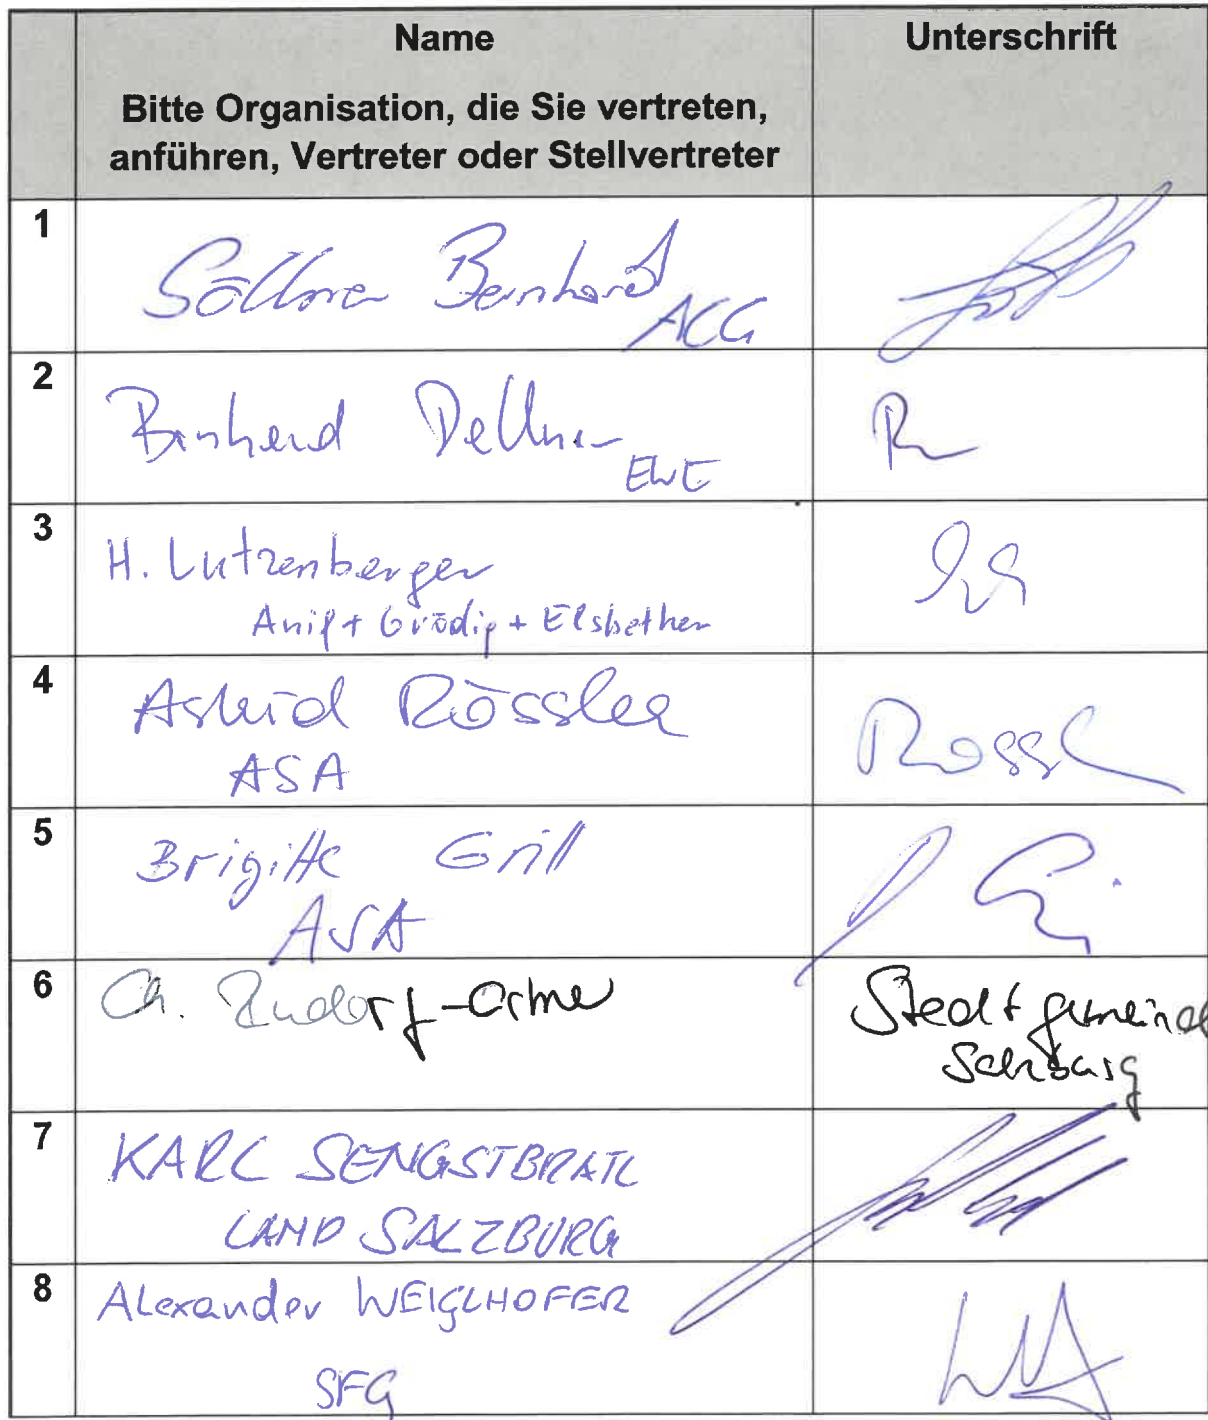 Name
Unterschrift
Bitte Organisation, die Sie vertreten,
anführen, Vertreter oder Stellvertreter
1
Söllner Bernhard
ACG
2
Bernhard Dellner
EWE
3
H. Lutzenberger
Anif + Grödig + Elsbethen
4
Astrid Rössler
ASA
Rössl
5
Brigitte Grill
ASA
6
Ch. Rudorf-
Stadtgemeinde
Salzburg
7
KARL SENGSTBRATL
LAND SALZBURG
8
Alexander WEIGLHOFER
SFG